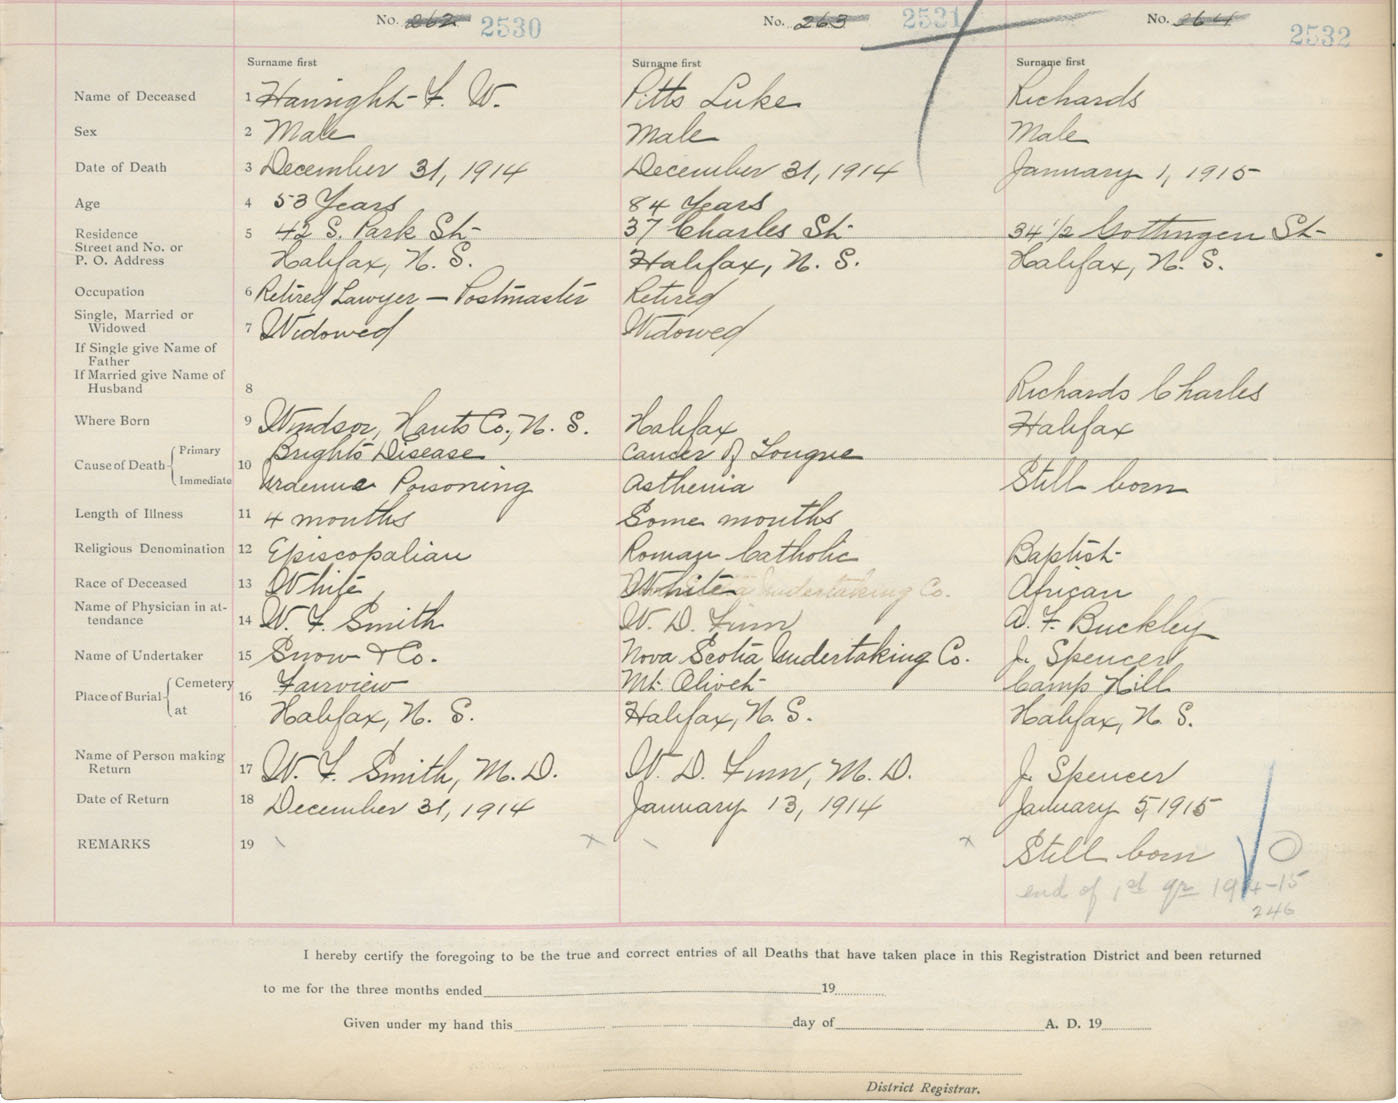 No. 262 2530 No. 263 2531 No. 264 2532
Surname first Surname first Surname first
Name of Deceased 1 F. W. Pitts Luke Richards
Sex 2 Male Male Male
Date of Death 3 December 31, 1914 December 31, 1914 January 1, 1915
Age 4 53 Years 84 Years
Residence 5 42 S. Park St- 37 Charles St- 34 1/2 Gottingen St-
Street and No. or
P. O. Address Halifax, N. S. Halifax, N. S. Halifax, N. S.
Occupation 6 Retired Lawyer — Postmaster Retired
Single, Married or
Widowed 7 Widowed Widowed
If Single give Name of
Father
If Married give Name of
Husband 8 Richards Charles
Where Born 9 Windsor, Hants Co., N. S. Halifax Halifax
Cause of Death 10 Primary Brights Disease Cancer of Tongue
Immediate Poisoning Asthenia Still born
Length of Illness 11 4 months Some months
Religious Denomination 12 Episcopalian Roman Catholic Baptist-
Race of Deceased 13 White White Undertaking Co. African
Name of Physician in at-
tendance 14 W. F. Smith W. D. Finn A. F. Buckley
Name of Undertaker 15 Snow & Co. Nova Scotia Undertaking Co. J. Spencer
Place of Burial 16 Cemetery Fairview Mt. Olivet- Camp Hill
at Halifax, N. S. Halifax, N. S. Halifax, N. S.
Name of Person making
Return 17 W. F. Smith, M. D. W. D. Finn, M. D. J. Spencer
Date of Return 18 December 31, 1914 January 13, 1914 January 5, 1915
REMARKS 19 Still born
end of 1st qr 1914-15
246
I hereby certify the foregoing to be the true and correct entries of all Deaths that have taken place in this Registration District and been returned
to me for the three months ended 19
Given under my hand this day of A. D. 19
District Registrar.